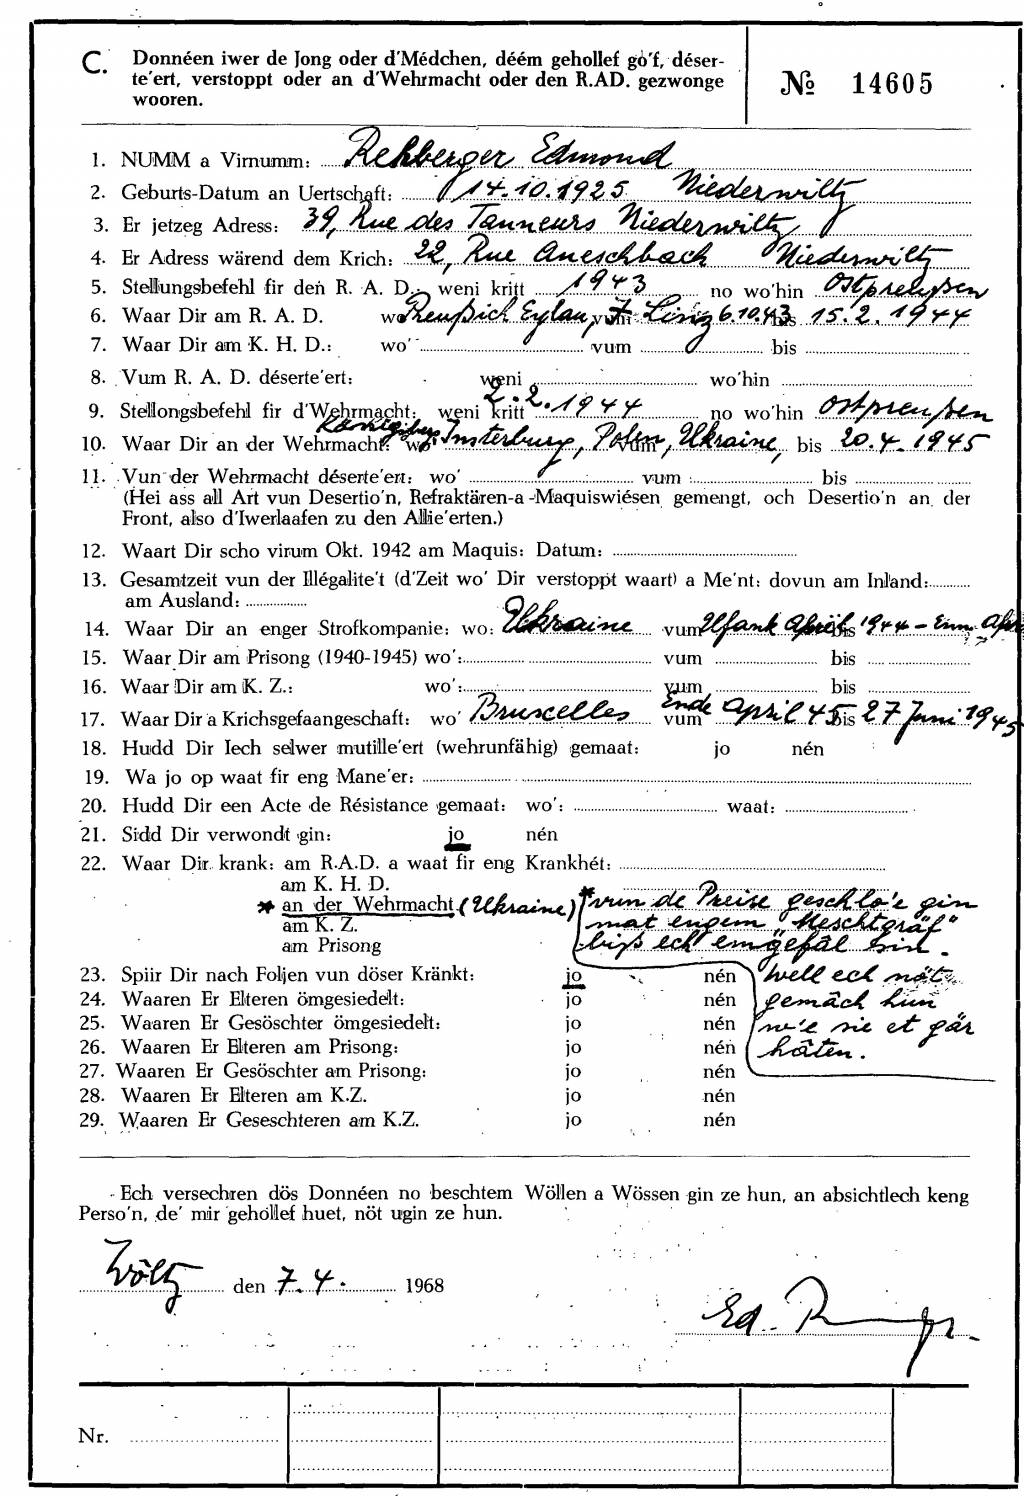 C. Donnéen iwer de Jong oder d'Médchen, déém gehollef go'f, déser-
te'ert, verstoppt oder an d'Wehrmacht oder den R.AD. gezwonge
wooren.
№ 14605
1. NUMM a Virnumm: Rehberger Edmond
2. Geburts-Datum an Uertschaft: 14.10.1925 Niederwiltz
3. Er jetzeg Adress: 39, Rue des Tanneurs Niederwiltz
4. Er Adress wärend dem Krich: 22, Rue Aneschbach Niederwiltz
5. Stellungsbefehl fir den R. A. D.: weni kritt 1943 no wo'hin Ostpreußen
6. Waar Dir am R. A. D. wo' Preußich Eylau, vum Linz 6.10.43 bis 15.2.1944
7. Waar Dir am K. H. D.: wo' vum bis
8. Vum R. A. D. déserte'ert: weni wo'hin
9. Stellongsbefehl fir d'Wehrmacht: weni kritt 2.2.1944 no wo'hin Ostpreußen
10. Waar Dir an der Wehrmacht: wo' Königsberg Insterburg, Posen, vum Ukraine, bis 20.4.1945
11. Vun der Wehrmacht déserte'ert: wo' vum bis
(Hei ass all Art vun Desertio'n, Refraktären-a-Maquiswiésen gemengt, och Desertio'n an der
Front, also d'Iwerlaafen zu den Allie'erten.)
12. Waart Dir scho virum Okt. 1942 am Maquis: Datum:
13. Gesamtzeit vun der Illégalite't (d'Zeit wo' Dir verstoppt waart) a Me'nt: dovun am Inland:
am Ausland:
14. Waar Dir an enger Strofkompanie: wo: Ukraine vum Ufank April bis 1944 - Enn Apr
15. Waar Dir am Prisong (1940-1945) wo': vum bis
16. Waar Dir am K. Z.: wo': vum bis
17. Waar Dir a Krichsgefaangeschaft: wo' Bruxelles vum Ende April 45 bis 27 Juni 1945
18. Hudd Dir Iech selwer mutille'ert (wehrunfähig) gemaat: jo nén
19. Wa jo op waat fir eng Mane'er:
20. Hudd Dir een Acte de Résistance gemaat: wo': waat:
21. Sidd Dir verwondt gin: jo nén
22. Waar Dir krank: am R.A.D. a waat fir eng Krankhét:
am K. H. D.
* an der Wehrmacht (Ukraine) * vun de Preise geschlo'e gin
am K. Z. mat engem "Meschtgräf"
am Prisong biss ech emgefal sin.
23. Spiir Dir nach Foljen vun döser Kränkt: jo nén well ech nöt
24. Waaren Er Elteren ömgesiedelt: jo nén gemâch hun
25. Waaren Er Gesöschter ömgesiedelt: jo nén w'e sie et gär
26. Waaren Er Elteren am Prisong: jo nén häten.
27. Waaren Er Gesöschter am Prisong: jo nén
28. Waaren Er Elteren am K.Z. jo nén
29. Waaren Er Geseschteren am K.Z. jo nén
Ech versechren dös Donnéen no beschtem Wöllen a Wössen gin ze hun, an absichtlech keng
Perso'n, de' mir gehollef huet, nöt ugin ze hun.
Wöltz den 7.4. 1968
Ed. R
Nr.